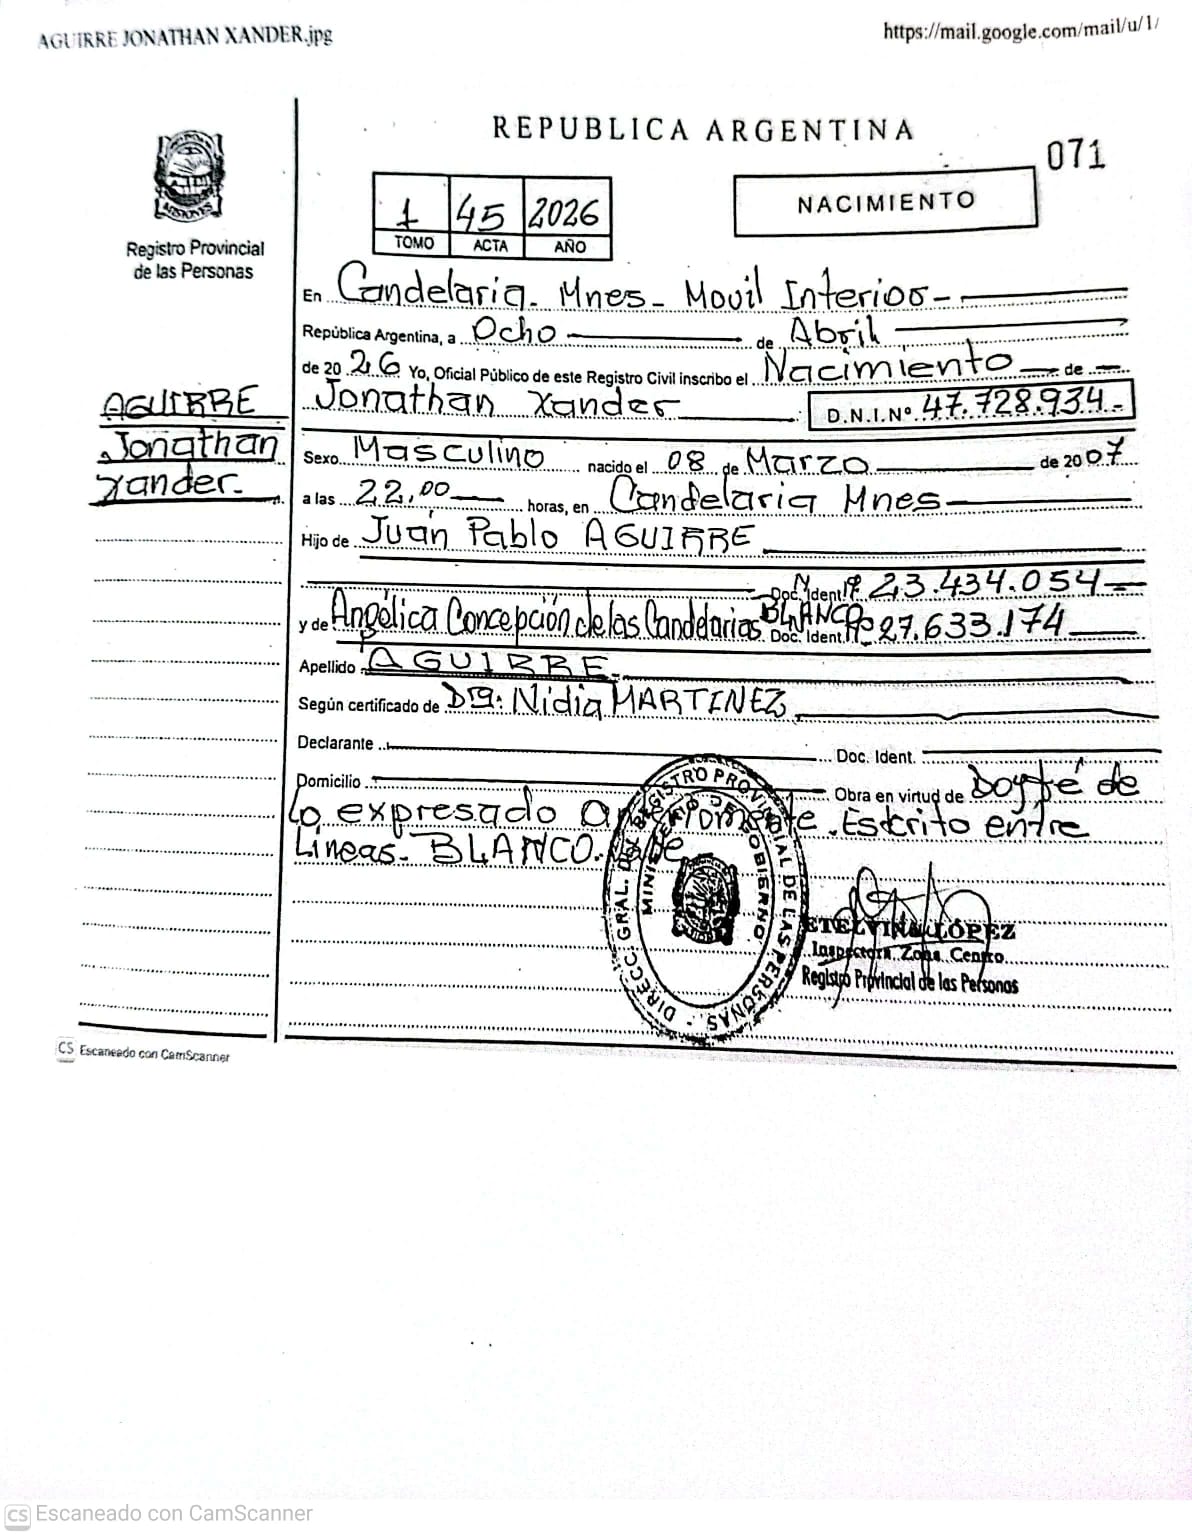 AGUIRRE JONATHAN XANDER.jpg
https://mail.google.com/mail/u/1/
REPUBLICA ARGENTINA
071
MISIONES
Registro Provincial
de las Personas
1 45 2026
TOMO ACTA AÑO
NACIMIENTO
En Candelaria. Mnes- Movil Interior-
República Argentina, a Ocho de Abril
de 2026 Yo, Oficial Público de este Registro Civil inscribo el Nacimiento de
Jonathan Xander D.N.I.Nº 47.728.934-
AGUIRRE
Jonathan
Xander.
Sexo Masculino nacido el 08 de Marzo de 2007
a las 22,00 horas, en Candelaria Mnes
Hijo de Juan Pablo AGUIRRE
Doc. Ident. Nº 23.434.054
y de Angélica Concepción de las Candelarias BLANCO Doc. Ident. Nº 27.633.174
Apellido AGUIRRE
Según certificado de Dra: Nidia MARTINEZ
Declarante Doc. Ident.
Domicilio Obra en virtud de Doy fé de
lo expresado anteriormente. Escrito entre
Líneas. BLANCO. Vale
DIRECC. GRAL. DEL REGISTRO PROVINCIAL DE LAS PERSONAS -
MINISTERIO DE GOBIERNO
ETELVINA LÓPEZ
Inspectora Zona Centro
Registro Provincial de las Personas
CS Escaneado con CamScanner
CS Escaneado con CamScanner